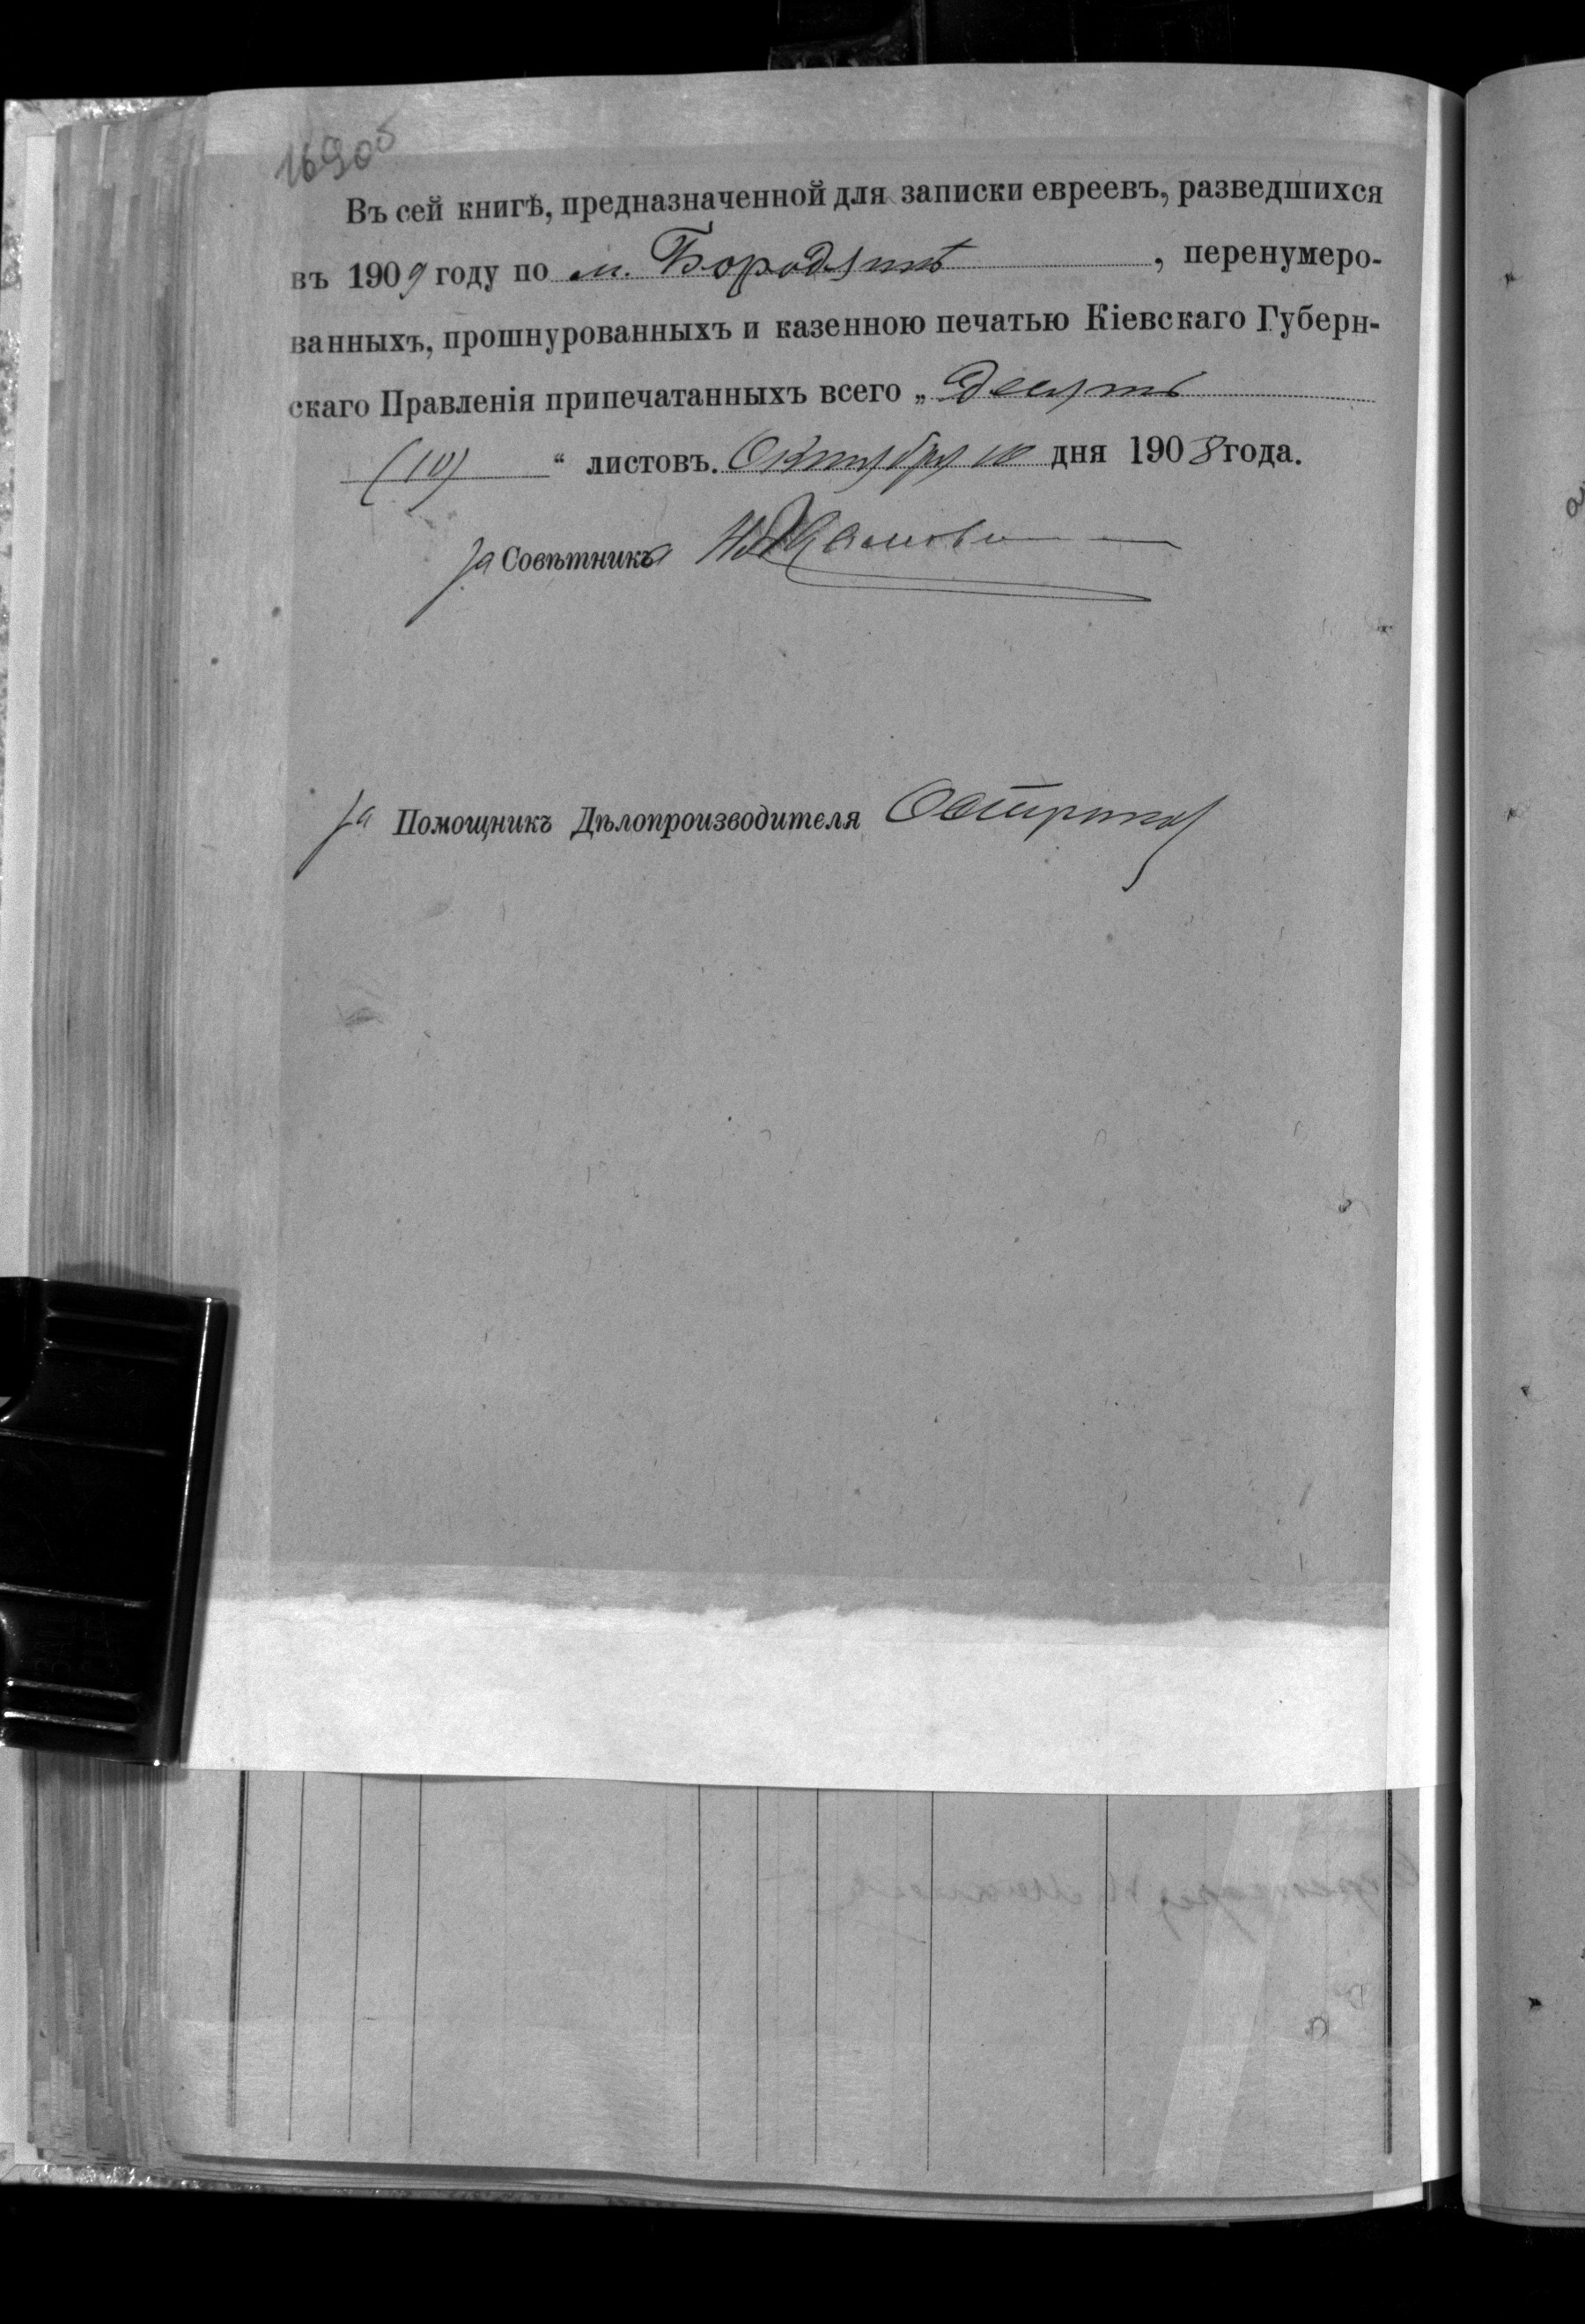 169об
Въ сей книгѣ, предназначенной для записки евреевъ, разведшихся
въ 1909 году по м. Бородянкѣ, перенумеро-
ванныхъ, прошнурованныхъ и казенною печатью Кіевскаго Губерн-
скаго Правленія припечатанныхъ всего „десять
(10)“ листовъ. Октября 10 дня 1908 года.
За Совѣтника
За Помощникъ Дѣлопроизводителя